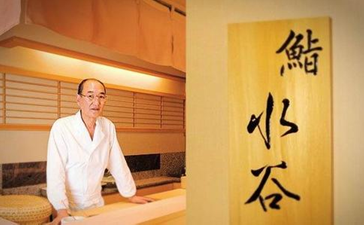 鮨
水
谷